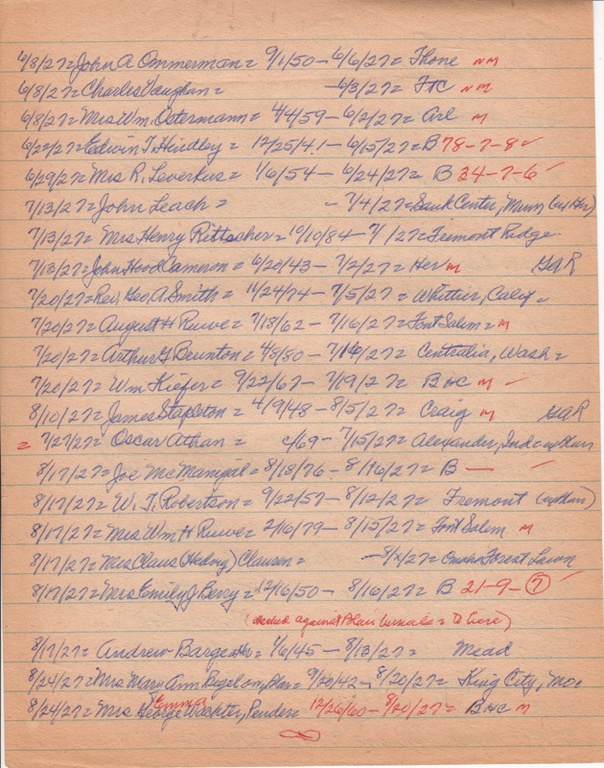 6/8/27=John A Ommerman= 9/1/50- 6/6/27= Fhone NM
6/8/27=Charles Vaughan= -6/3/27= FtC NM
6/8/27=Mrs Wm. Ostermann= 4/4/59- 6/2/27= Arl M
6/22/27=Edwin T. Hindley= 12/25/41- 6/15/27=B 78-7-8 ✓
6/29/27= Mrs R. Leverkus= 1/6/54- 6/24/27= B 34-7-6 ✓
7/13/27=John Leach= - 7/4/27=Sauk Center, Minn (ex Her)
7/13/27= Mrs Henry Rittscher=10/10/84- 7/ /27=Fremont Ridge
7/13/27=John Hood Cameron= 6/20/43- 7/2/27= Her M GAR
7/20/27=Rev. Geo. A. Smith= 11/24/74- 7/5/27= Whittier, Calif=
7/20/27= August H Ruwe= 7/18/62- 7/16/27=Font Salem= M
7/20/27= Arthur G Brunton= 4/8/80- 7/16/27= Centralia, Wash=
7/20/27= Wm Kiefer= 9/22/67- 7/19/27= BHC M ✓
8/10/27=James Stapleton= 4/9/48-8/5/27= Craig M GAR
= 7/27/27= Oscar Athan= c/69- 7/15/27=Alexander, Ind=
8/17/27=Joe McManigal=8/18/76-8/16/27= B — ✓
8/17/27= W. T. Robertson= 9/22/57- 8/12/27= Fremont
8/17/27= Mrs Wm H Ruwe= 2/16/79- 8/15/27= Font Salem M
8/17/27= Mrs Claus (Hedwig) Clausen= -8/x/27= Omaha Forest Lawn
8/17/27= Mrs Emily J. Berry=12/16/50- 8/16/27= B 21-9-⑦ ✓
(checked against Blair burials= to here)
8/17/27= Andrew Bargeahr= 1/6/45- 8/13/27= Mead
8/24/27=Mrs Mary Ann Bigelow, Blair= 9/20/42- 8/20/27= King City, Mo=
Emma
8/24/27= Mrs George Wachter, Pender= 12/26/60- 8/20/27= BHC M